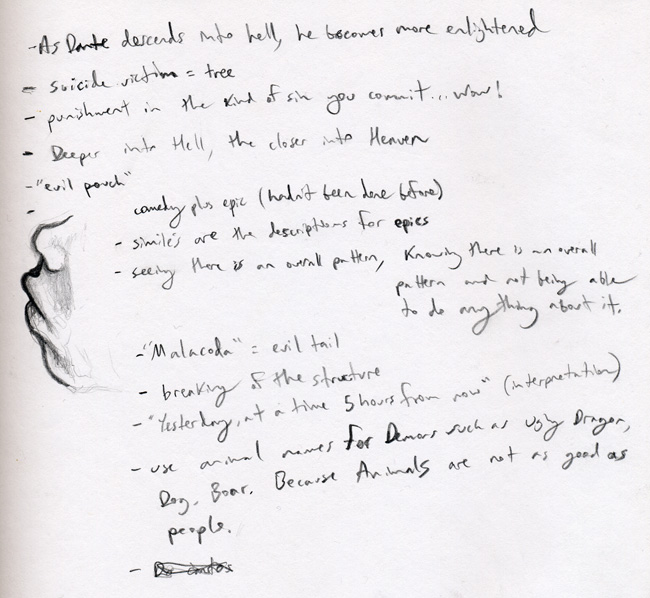 - As Dante descends into hell, he becomes more enlightened
- suicide victim = tree
- punishment in the kind of sin you commit... wow!
- Deeper into Hell, the closer into Heaven
- "evil pouch"
-
comedy plus epic (hadn't been done before)
- simile's are the descriptions for epics
- seeing there is an overall pattern, Knowing there is an overall
pattern and not being able
to do anything about it.
- "Malacoda" = evil tail
- breaking of the structure
- "Yesterday, at a time 5 hours from now" (interpretation)
- use animal names for Demons such as Ugly Dragon,
Dog, Boar. Because Animals are not as good as
people.
-